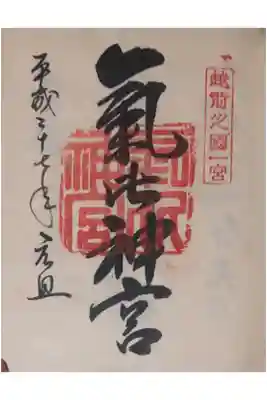 越前之國一宮
氣比神宮
氣比神宮
平成二十七年元旦